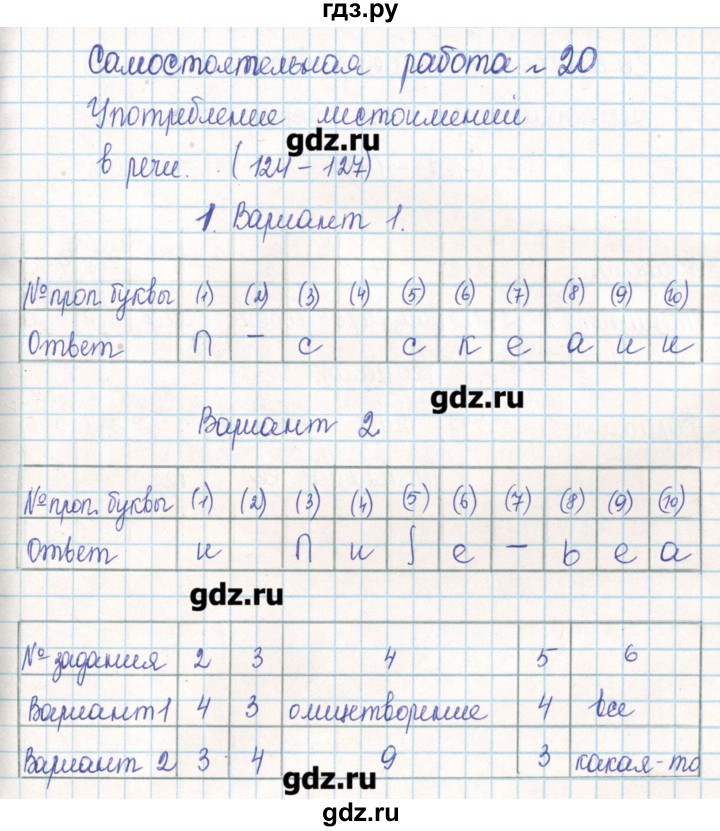 гдз.ру
Самостоятельная работа № 20
Употребление местоимений
gdz.ru
в речи. (124 – 127)
1. Вариант 1.
№ проп. буквы (1) (2) (3) (4) (5) (6) (7) (8) (9) (10)
Ответ П – с с к е а и и
gdz.ru
Вариант 2
№ проп. буквы (1) (2) (3) (4) (5) (6) (7) (8) (9) (10)
Ответ и П и ∫ е – ь е а
gdz.ru
№ задания 2 3 4 5 6
Вариант 1 4 3 олицетворение 4 все
Вариант 2 3 4 9 3 какая-то
gdz.ru
gdz.ru